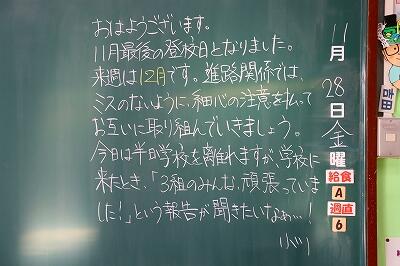 おはようございます。
11月最後の登校日となりました。
来週は12月です。進路関係では、
ミスのないように、細心の注意を払って
お互いに取り組んでいきましょう。
今日は半日学校を離れますが、学校に
来たとき、「3組のみんな、頑張っていま
した!」という報告が聞きたいなぁ…!
小川
11月
28日
金曜
給食
A
週直
6